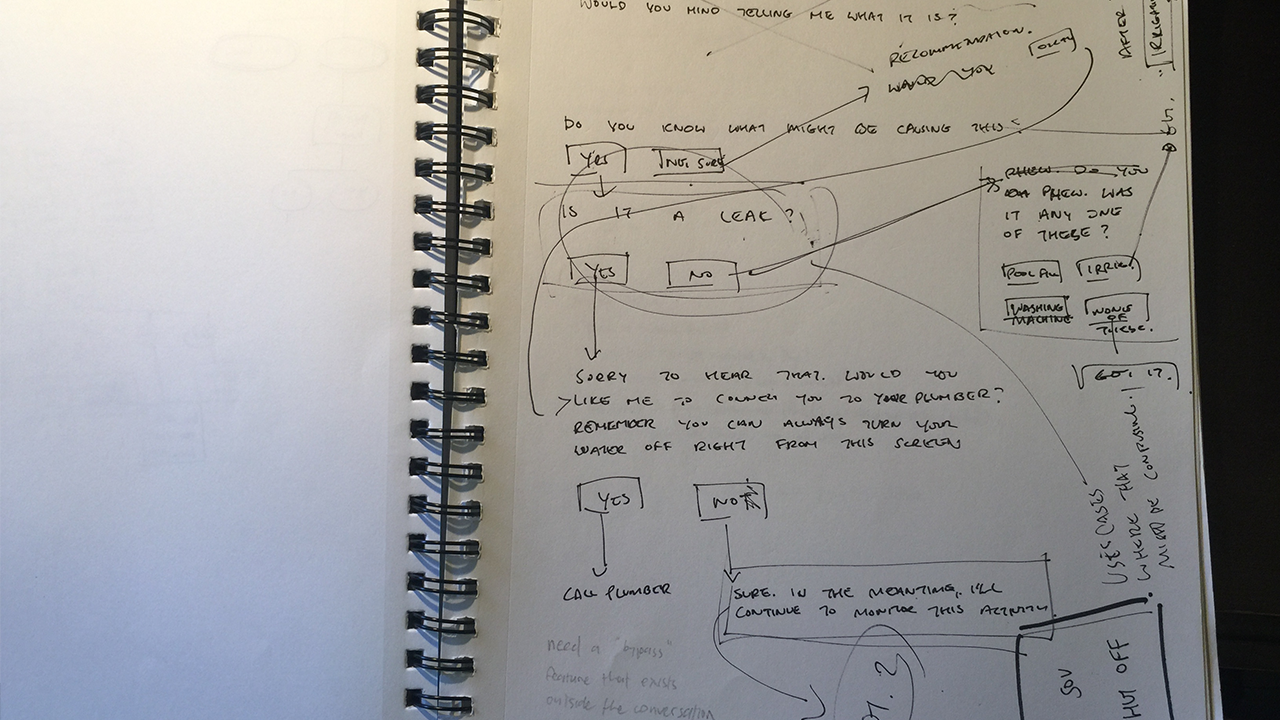 WOULD YOU MIND TELLING ME WHAT IT IS?
RECOMMENDATION.
WOULD YOU
OKAY
AFTER
IRRIGA
DO YOU KNOW WHAT MIGHT BE CAUSING THIS?
YES
NOT SURE
IS IT A LEAK?
YES
NO
PHEW. DO YOU
PHEW. WAS
IT ANY ONE
OF THESE?
POOL FILL
IRRIG.
WASHING
MACHINE
NONE
OF
THESE.
GOT IT.
SORRY TO HEAR THAT. WOULD YOU
LIKE ME TO CONNECT YOU TO YOUR PLUMBER?
REMEMBER YOU CAN ALWAYS TURN YOUR
WATER OFF RIGHT FROM THIS SCREEN
YES
NO
CALL PLUMBER
SURE. IN THE MEANTIME, I'LL
CONTINUE TO MONITOR THIS ACTIVITY.
USES CASES
WHERE THAT
MIGHT BE CONFUSING.
need a "bypass"
feature that exists
outside the conversation
HUT OFF